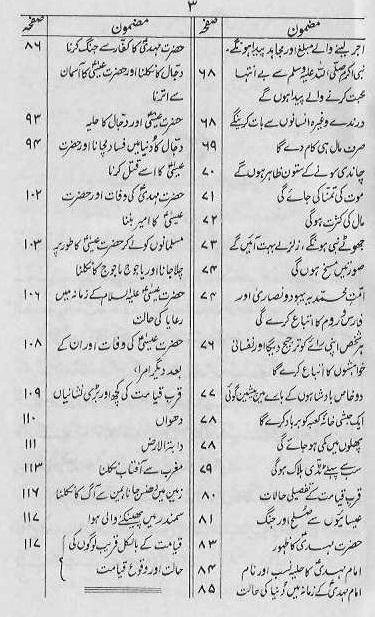 ۳
مضمون صفحہ
اجر لینے والے مبلغ اور مجاہد پیدا ہونگے۔
نبی اکرم صلی اللہ علیہ وسلم سے بے انتہا ۶۸
محبت کرنے والے پیدا ہوں گے
درندے وغیرہ انسانوں سے بات کرینگے ۶۸
صرف مال ہی کام دے گا ۶۹
چاندی سونے کے ستون ظاہر ہوں گے ۷۰
موت کی تمنا کی جائے گی ۷۱
مال کی کثرت ہوگی ۷۲
جھوٹے نبی ہونگے، زلزلے بہت آئیں گے ۷۳
صورتیں مسخ ہوں گی ۷۴
امت محمدیہ یہود و نصاریٰ اور ۷۴
فارس و روم کا اتباع کرے گی
ہر شخص اپنی رائے کو ترجیح دیگا اور نفسانی ۷۶
خواہشوں کا اتباع کرے گا
دو خاص بادشاہوں کے بارے میں پیشین گوئی ۷۷
ایک حبشی خانہ کعبہ کو برباد کرے گا ۷۸
پھلوں میں کمی ہو جائے گی ۷۸
سب سے پہلے ٹڈی ہلاک ہوگی ۷۹
قرب قیامت کے تفصیلی حالات ۸۰
عیسائیوں سے صلح اور جنگ ۸۱
حضرت مہدیؑ کا ظہور ۸۳
امام مہدیؑ کا حلیہ نسب اور نام ۸۴
امام مہدیؑ کے زمانہ میں دنیا کی حالت ۸۵
مضمون صفحہ
حضرت مہدیؑ کا کفار سے جنگ کرنا ۸۶
دجال کا نکلنا اور حضرت عیسیٰؑ کا آسمان
سے اترنا
حضرت عیسیٰؑ اور دجال کا حلیہ ۹۳
دجال کا دنیا میں فساد مچانا اور حضرت ۹۴
عیسیٰؑ کا اسے قتل کرنا
حضرت مہدیؑ کی وفات اور حضرت ۱۰۲
عیسیٰؑ کا امیر بننا
مسلمانوں کو لے کر حضرت عیسیٰؑ کا طور پر ۱۰۳
چلا جانا اور یاجوج ماجوج کا نکلنا
حضرت عیسیٰ علیہ السلام کے زمانہ میں ۱۰۶
رعایا کی حالت
حضرت عیسیٰؑ کی وفات اور ان کے ۱۰۸
بعد دیگر امرا،
قرب قیامت کی کچھ اور بڑی نشانیاں ۱۰۹
دھواں ۱۱۰
دابۃ الارض ۱۱۱
مغرب سے آفتاب نکلنا ۱۱۳
زمین میں دھنس جانا یمن سے آگ کا نکلنا ۱۱۶
سمندر میں پھینکنے والی ہوا ۱۱۷
قیامت کے بالکل قریب لوگوں کی ۱۱۷
حالت اور وقوع قیامت